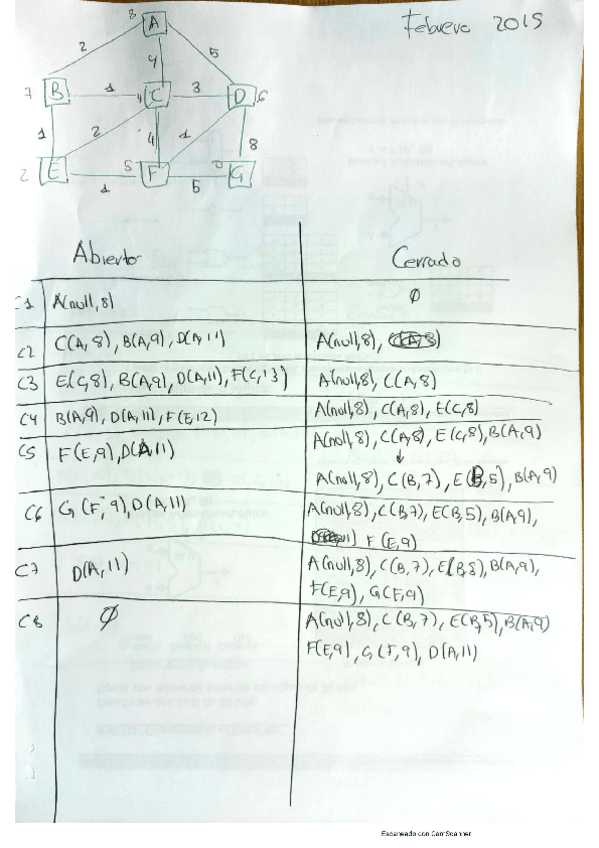 Febrero 2015
8 A
2 4 5
7 B 1 4 C 3 D 6
1 2 4 1 8
2 E 1 5 F 5 0 G
Abierto Cerrado
C1 A(null,8) ∅
C2 C(A,8), B(A,9), D(A,11) A(null,8),
C3 E(C,8), B(A,9), D(A,11), F(C,13) A(null,8), C(A,8)
C4 B(A,9), D(A,11), F(E,12) A(null,8), C(A,8), E(C,8)
C5 F(E,9), D(A,11) A(null,8), C(A,8), E(C,8), B(A,9)
↓
A(null,8), C(B,7), E(B,5), B(A,9)
C6 G(F,9), D(A,11) A(null,8), C(B,7), E(B,5), B(A,9),
F(E,9)
C7 D(A,11) A(null,8), C(B,7), E(B,8), B(A,9),
F(E,9), G(F,9)
C8 ∅ A(null,8), C(B,7), E(B,5), B(A,9)
F(E,9), G(F,9), D(A,11)
Escaneado con CamScanner